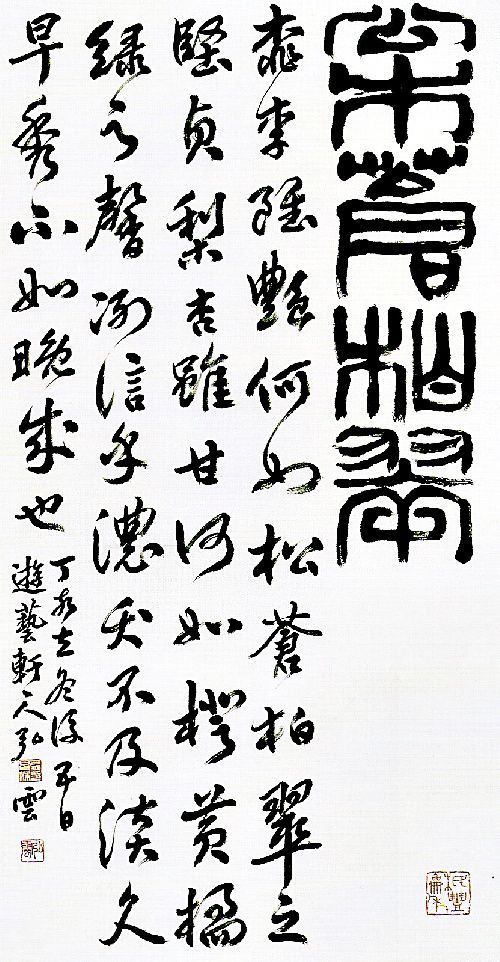 松蒼柏翠
桃李雖艷何如松蒼柏翠之
堅貞梨杏雖甘何如橙黃橘
綠之馨冽信乎濃夭不及淡久
早秀不如晚成也
丁亥立冬後五日
遊藝軒人弘雲